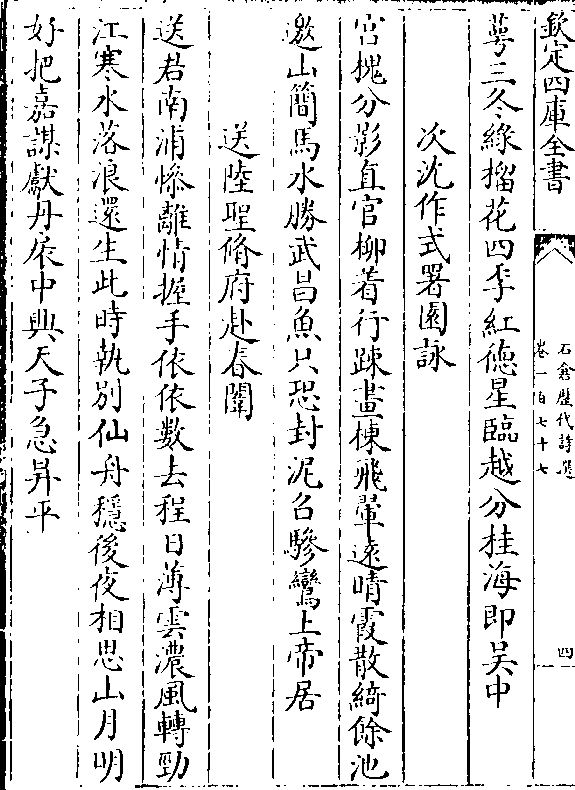 欽定四庫全書
石倉歷代詩選
卷一百七十七
四
萼三冬緑榴花四季紅徳星臨越分桂海即吴中
次沈作式署園詠
官槐分影直官柳着行疎畫棟飛翬逺晴霞散綺餘池
邀山簡馬水勝武昌魚只恐封泥召驂鸞上帝居
送陸聖脩府赴春闈
送君南浦慘離情握手依依數去程日薄雲濃風轉勁
江寒水落浪還生此時執别仙舟穩後夜相思山月明
好把嘉謀獻丹扆中興天子急昇平